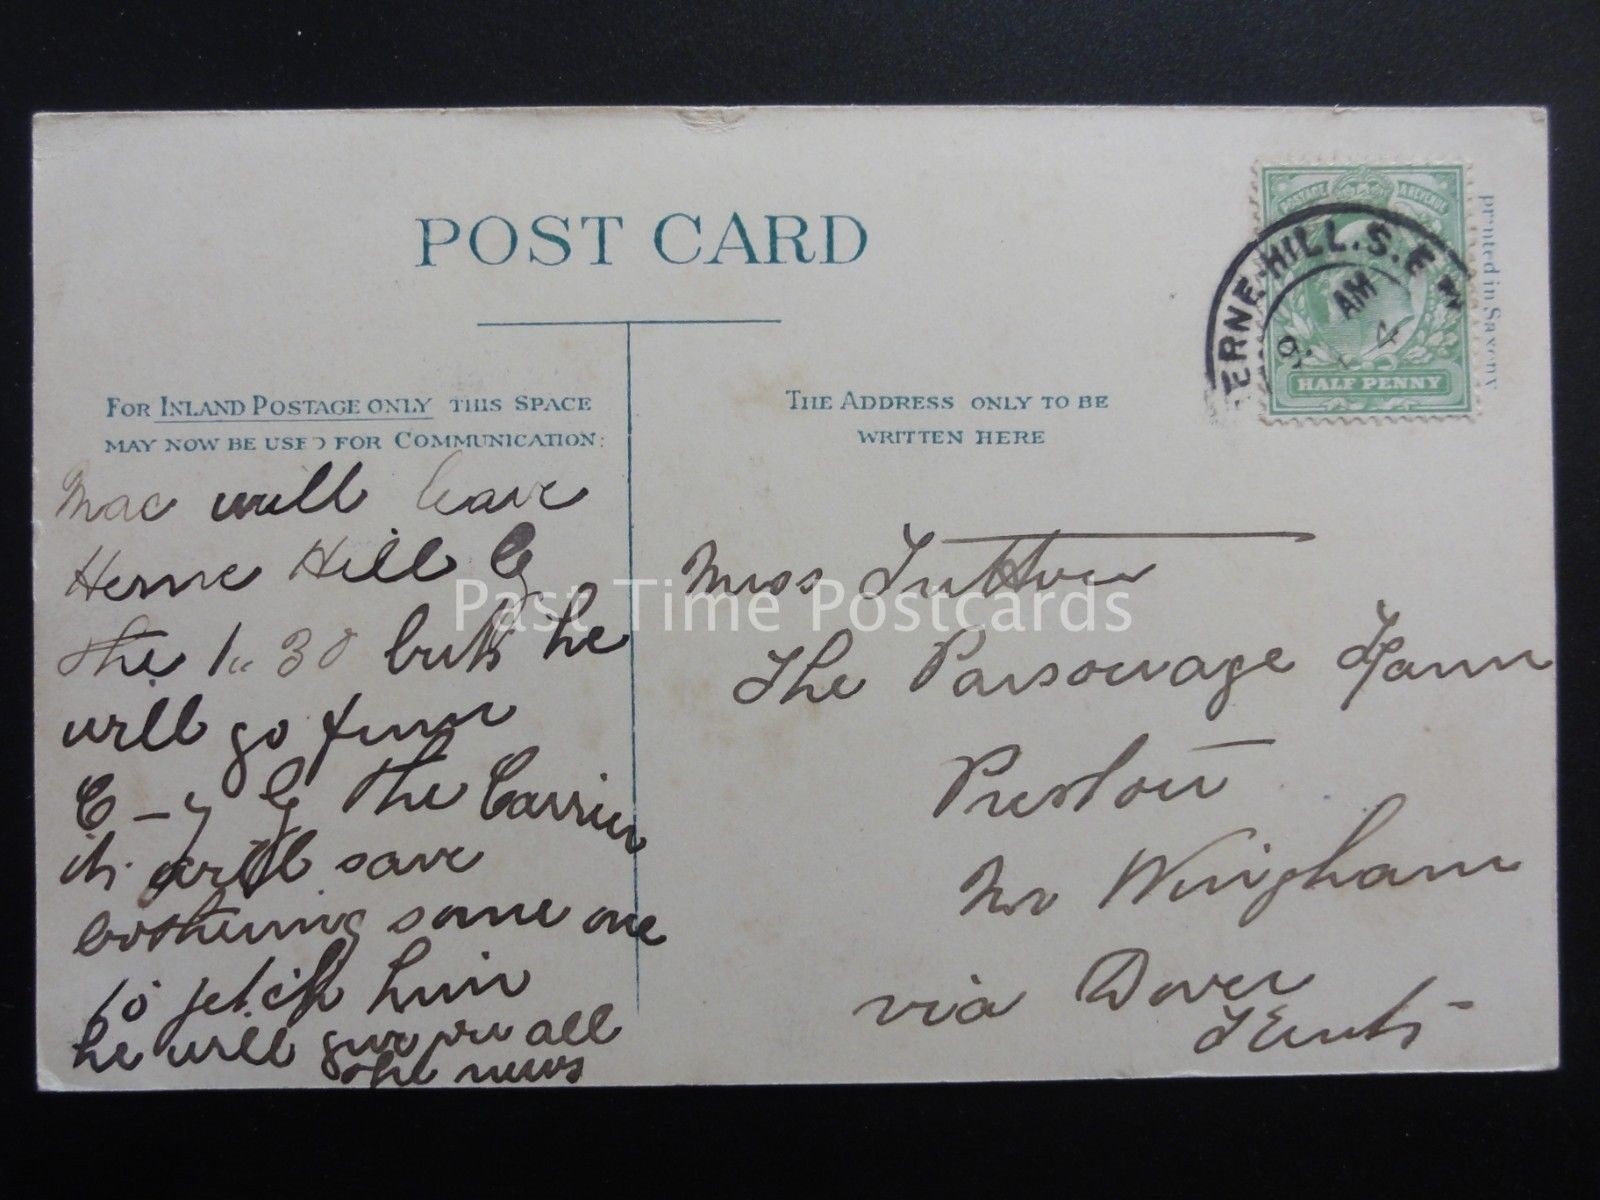 POST CARD
POSTAGE & REVENUE
HALF PENNY
ERNE-HILL.S.E
AM
9 4
printed in Saxony
FOR INLAND POSTAGE ONLY THIS SPACE
MAY NOW BE USED FOR COMMUNICATION:
THE ADDRESS ONLY TO BE
WRITTEN HERE
Mac will leave
Herne Hill by
the 1.. 30 but he
will go from
C - y by the Carrier
it will save
bothering some one
to fetch him
he will give you all
the news
Miss Tutton
The Parsonage Farm
Preston
Nr Wingham
via Dover
Kent
Past Time Postcards